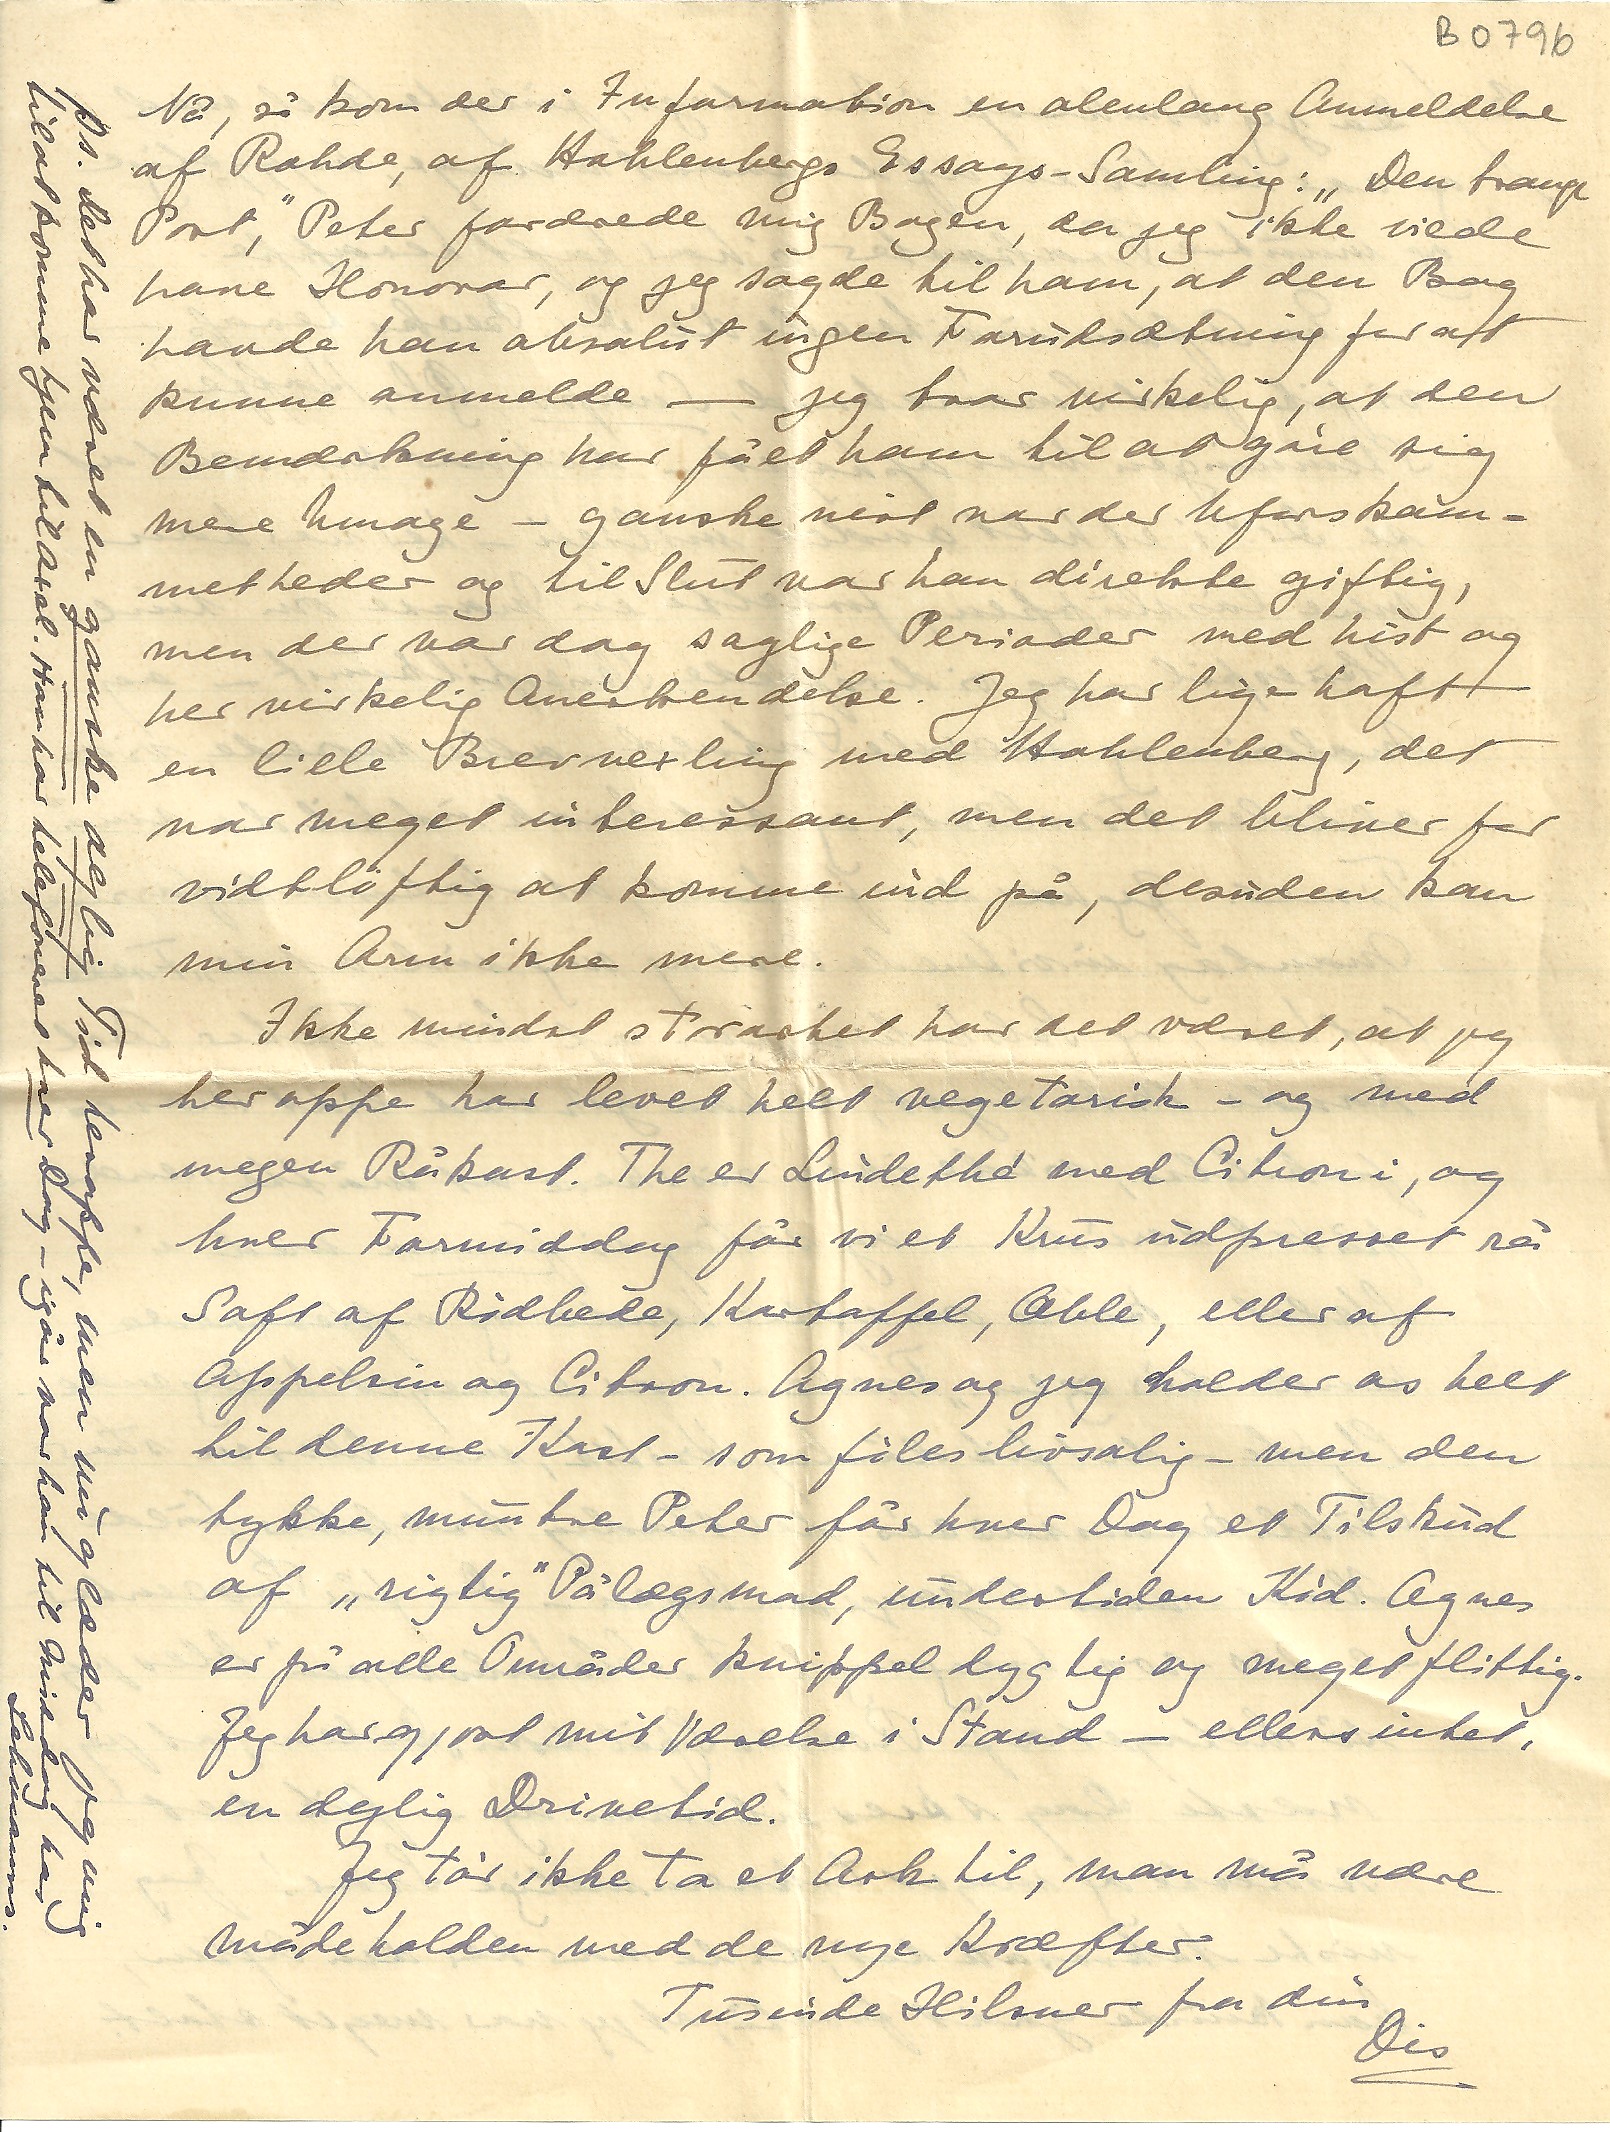 B0796
Nå, så kom der i Information en alenlang Anmeldelse
af Rohde, af Hohlenbergs Essays-Samling: „Den trange
Port," Peter forærede mig Bogen, da jeg ikke vilde
have Honorar, og jeg sagde til ham, at den Bog
havde han absolut ingen Forudsætning for at
kunne anmelde — jeg tror virkelig, at den
Bemærkning har fået ham til at gøre sig
mere Umage – ganske vist var der Uforskam-
metheder og til Slut var han direkte giftig,
men der var dog saglige Perioder med hist og
her virkelig Anerkendelse. Jeg har lige haft
en lille Brevvexling med Hohlenberg, det
var meget interessant, men det bliver for
vidtløftig at komme ind på, desuden kan
min Arm ikke mere.
Ikke mindst stærket har det været, at jeg
heroppe har levet helt vegetarisk – og med
megen Råkost. The er Lindethé med Citron i, og
hver Formiddag får vi et Krus udpresset rå
Saft af Rødbede, Kartoffel, Æble, eller af
Appelsin og Citron. Agnes og jeg holder os helt
til denne Kost – som føles livsalig – men den
tykke, muntre Peter får hver Dag et Tilskud
af „rigtig" Pålægsmad, undertiden Kød. Agnes
er på alle Områder knippel dygtig og meget flittig.
Jeg har gjort mit Værelse i Stand — ellers intet,
en dejlig Drivetid.
Jeg tør ikke ta et Ark til, man må være
mådeholden med de nye Kræfter.
Tusinde Hilsner fra din
Dis
Ps. det har været en ganske dejlig Tid heroppe, men nu glæder jeg mig
til at komme hjem til Axel. Han har telefoneret hver Dag – igår var han til Middag hos
Lehmanns.